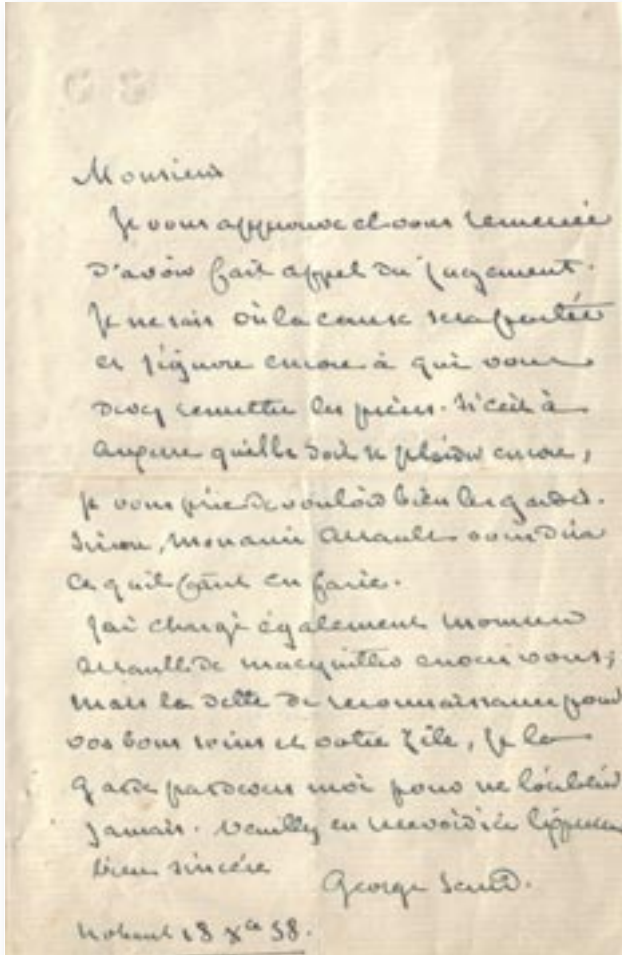 Monsieur
Je vous approuve et vous remercie
d'avoir fait appel du jugement.
Je ne sais où la cause sera portée
et j'ignore encore à qui vous
devez remettre les pièces. Si c'est à
qu'elle doit se plaider encore,
je vous prie de vouloir bien les garder.
Sinon, mon ami vous dira
ce qu'il faut en faire.
J'ai chargé également monsieur
de m'acquitter envers vous;
mais la dette de reconnaissance pour
vos bons soins et votre zèle, je la
garde par devers moi pour ne l'oublier
jamais. Veuillez en recevoir ici
bien sincère
George Sand.
Nohant 18 Xbre 58.